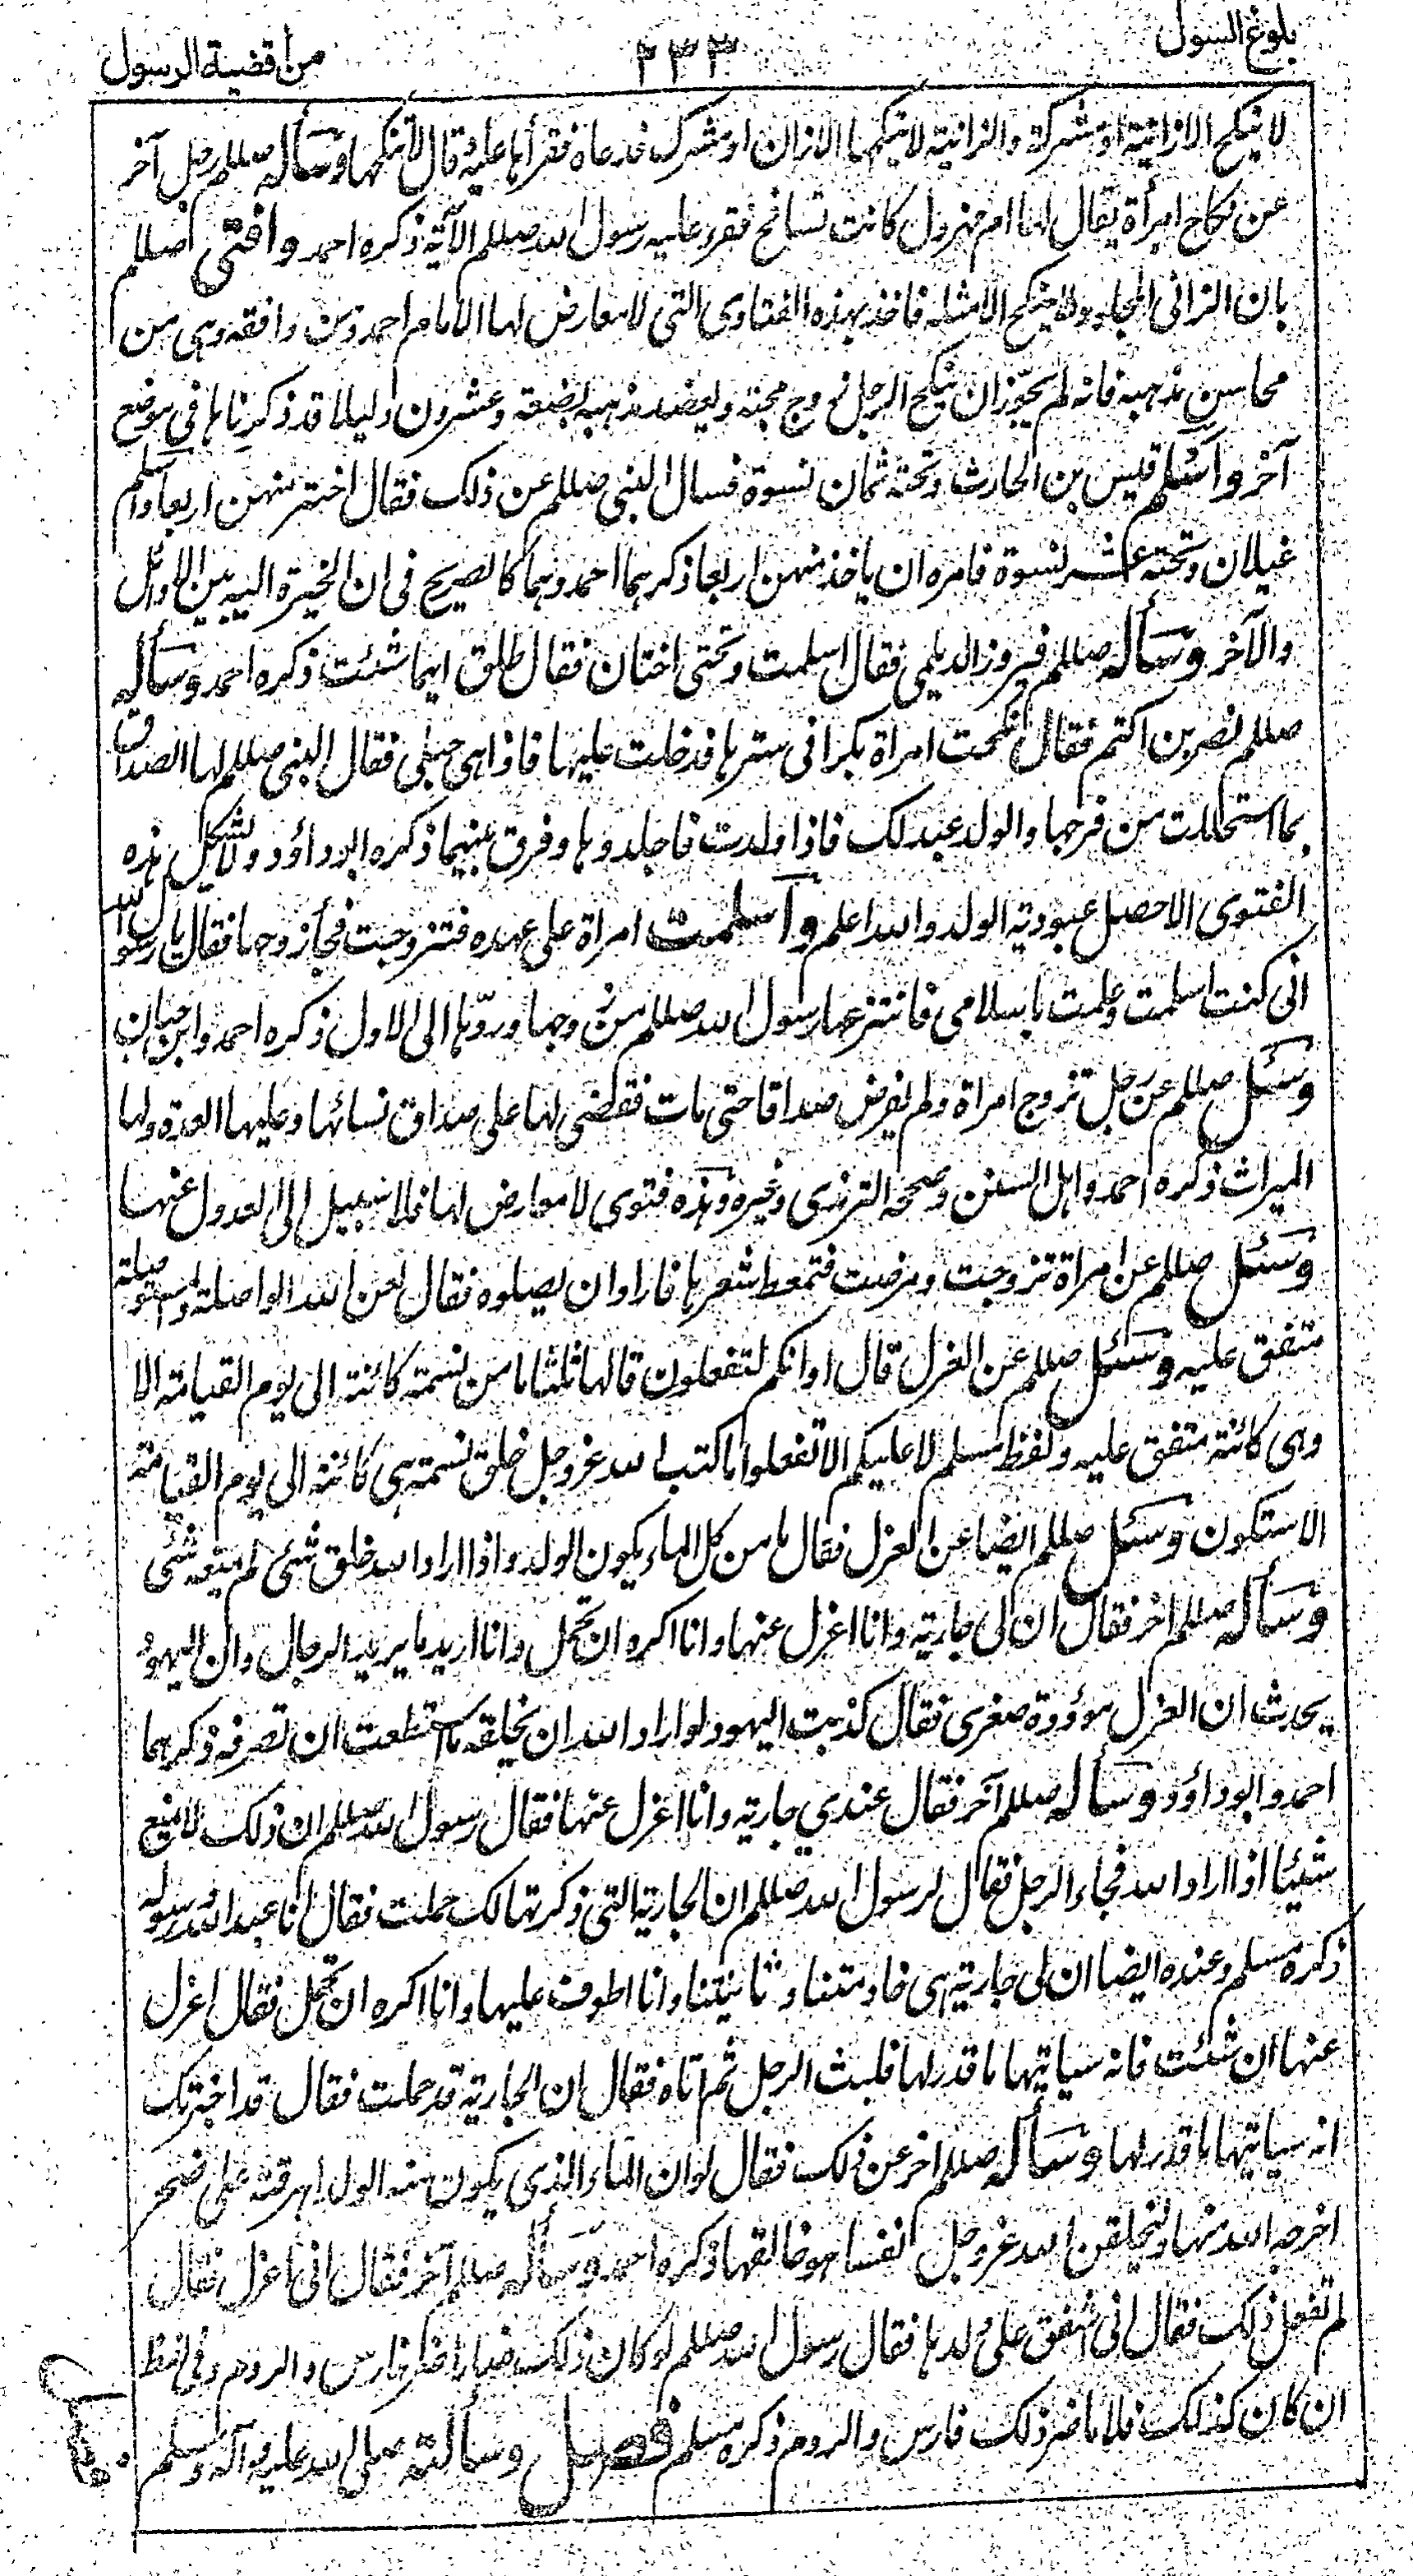 بلوغ السول
۲۳۳
من أقضية الرسول
لا ينكح الا زانية او مشركة والزانية لا ينكحها الا زان او مشرك فدعاه فقرأها عليه وقال لا تنكحها وسأله صللم رجل آخر
عن نكاح امرأة يقال لها ام مهزول كانت تسافح فقرء عليه رسول الله صللم الآية ذكره احمد وافتى صللم
بان الزاني المجلود لا ينكح الا مثله فاخذ بهذه الفتاوى التي لا معارض لها الامام احمد ومن وافقه وهي من
محاسن مذهبه فانه لم يجوّز ان ينكح الرجل زوج قحبة ويعضد مذهبه بضعة وعشرون دليلا قد ذكرناها في موضع
آخر واسلم قيس بن الحارث وتحته ثمان نسوة فسال النبي صللم عن ذلك فقال اختر منهن اربعا واسلم
غيلان وتحته عشر نسوة فامره ان ياخذ منهن اربعا ذكرهما احمد وهما كالصريح في ان الخيرة اليه بين الاوائل
والآخر وسأله صللم فيروز الديلمي فقال اسلمت وتحتي اختان فقال طلق ايهما شئت ذكره احمد وسأله
صللم نصر بن اكثم فقال نكحت امراة بكرا في سترها فدخلت عليها فاذا هي حبلى فقال النبي صللم لها الصداق
بما استحللت من فرجها والولد عبد لك فاذا ولدت فاجلدوها وفرق بينهما ذكره ابو داؤد ولا يشكل هذه
الفتوى الا حصل عبودية الولد والله اعلم واسلمت امراة على عهده فتزوجت فجأ زوجها فقال يا رسول الله
انى كنت اسلمت وعلمت باسلامي فانتزعها رسول الله صللم من زوجها وردّها الى الاول ذكره احمد وابن حبان
وسئل صللم عن رجل تزوج امراة ولم يفرض صداقا حتى مات فقضى لها على صداق نسائها وعليها العدة ولها
الميراث ذكره احمد واهل السنن وصححه الترمذي وغيره وهذه فتوى لا معارض لها فلا سبيل الى العدول عنها
وسئل صللم عن امراة تزوجت ومرضت فتمعط شعرها فارادوا ان يصلوه فقال لعن الله الواصلة والمستوصلة
متفق عليه وسئل صللم عن العزل قال اوانكم لتفعلون قالها ثلثا ما من نسمة كائنة الى يوم القيامة الا
وهى كائنة متفق عليه ولفظ مسلم لا عليكم الا تفعلوا ما كتب الله عز وجل خلق نسمة هى كائنة الى يوم القيامة
الا ستكون وسئل صللم ايضا عن العزل فقال ما من كل الماء يكون الولد واذا اراد الله خلق شئ لم يمنعه شئى
وسأله صللم اخر فقال ان لى جارية وانا اعزل عنها وانا اكره ان تحمل وانا اريد ما يريد الرجال وان اليهود
يحدث ان العزل موؤدة صغرى فقال كذبت اليهود لو اراد الله ان يخلقه ما استطعت ان تصرفه ذكرهما
احمد وابو داؤد وسأله صللم آخر فقال عندي جارية وانا اعزل عنها فقال رسول الله صللم ان ذلك لا يمنع
شيئا اذا اراد الله فجاء الرجل فقال لرسول الله صللم ان الجارية التي ذكرتها لك حملت فقال انا عبد الله ورسوله
ذكره مسلم وعنده ايضا ان لى جارية هى خادمتنا وسانيتنا وانا اطوف عليها وانا اكره ان تحمل فقال اعزل
عنها ان شئت فانه سياتيها ما قدر لها فلبث الرجل ثم اتاه فقال ان الجارية قد حملت فقال قد اخبرتك
انه سياتيها ما قدر لها وسأله صللم اخر عن ذلك فقال لو ان الماء الذي يكون منه الولد اهرقته على صخر
اخرجه الله منها وليخلقن الله عز وجل نفسا هو خالقها ذكره احمد وسأله صللم آخر فقال انى اعزل فقال
لم تفعل ذلك فقال انى اشفق على ولدها فقال رسول الله صللم لو كان ذلك ضارا ضر فارس والروم وفي لفظ
ان كان كذلك فلا ما ضر ذلك فارس والروم ذكره مسلم فصل وسألته صلى الله عليه وآله وسلم